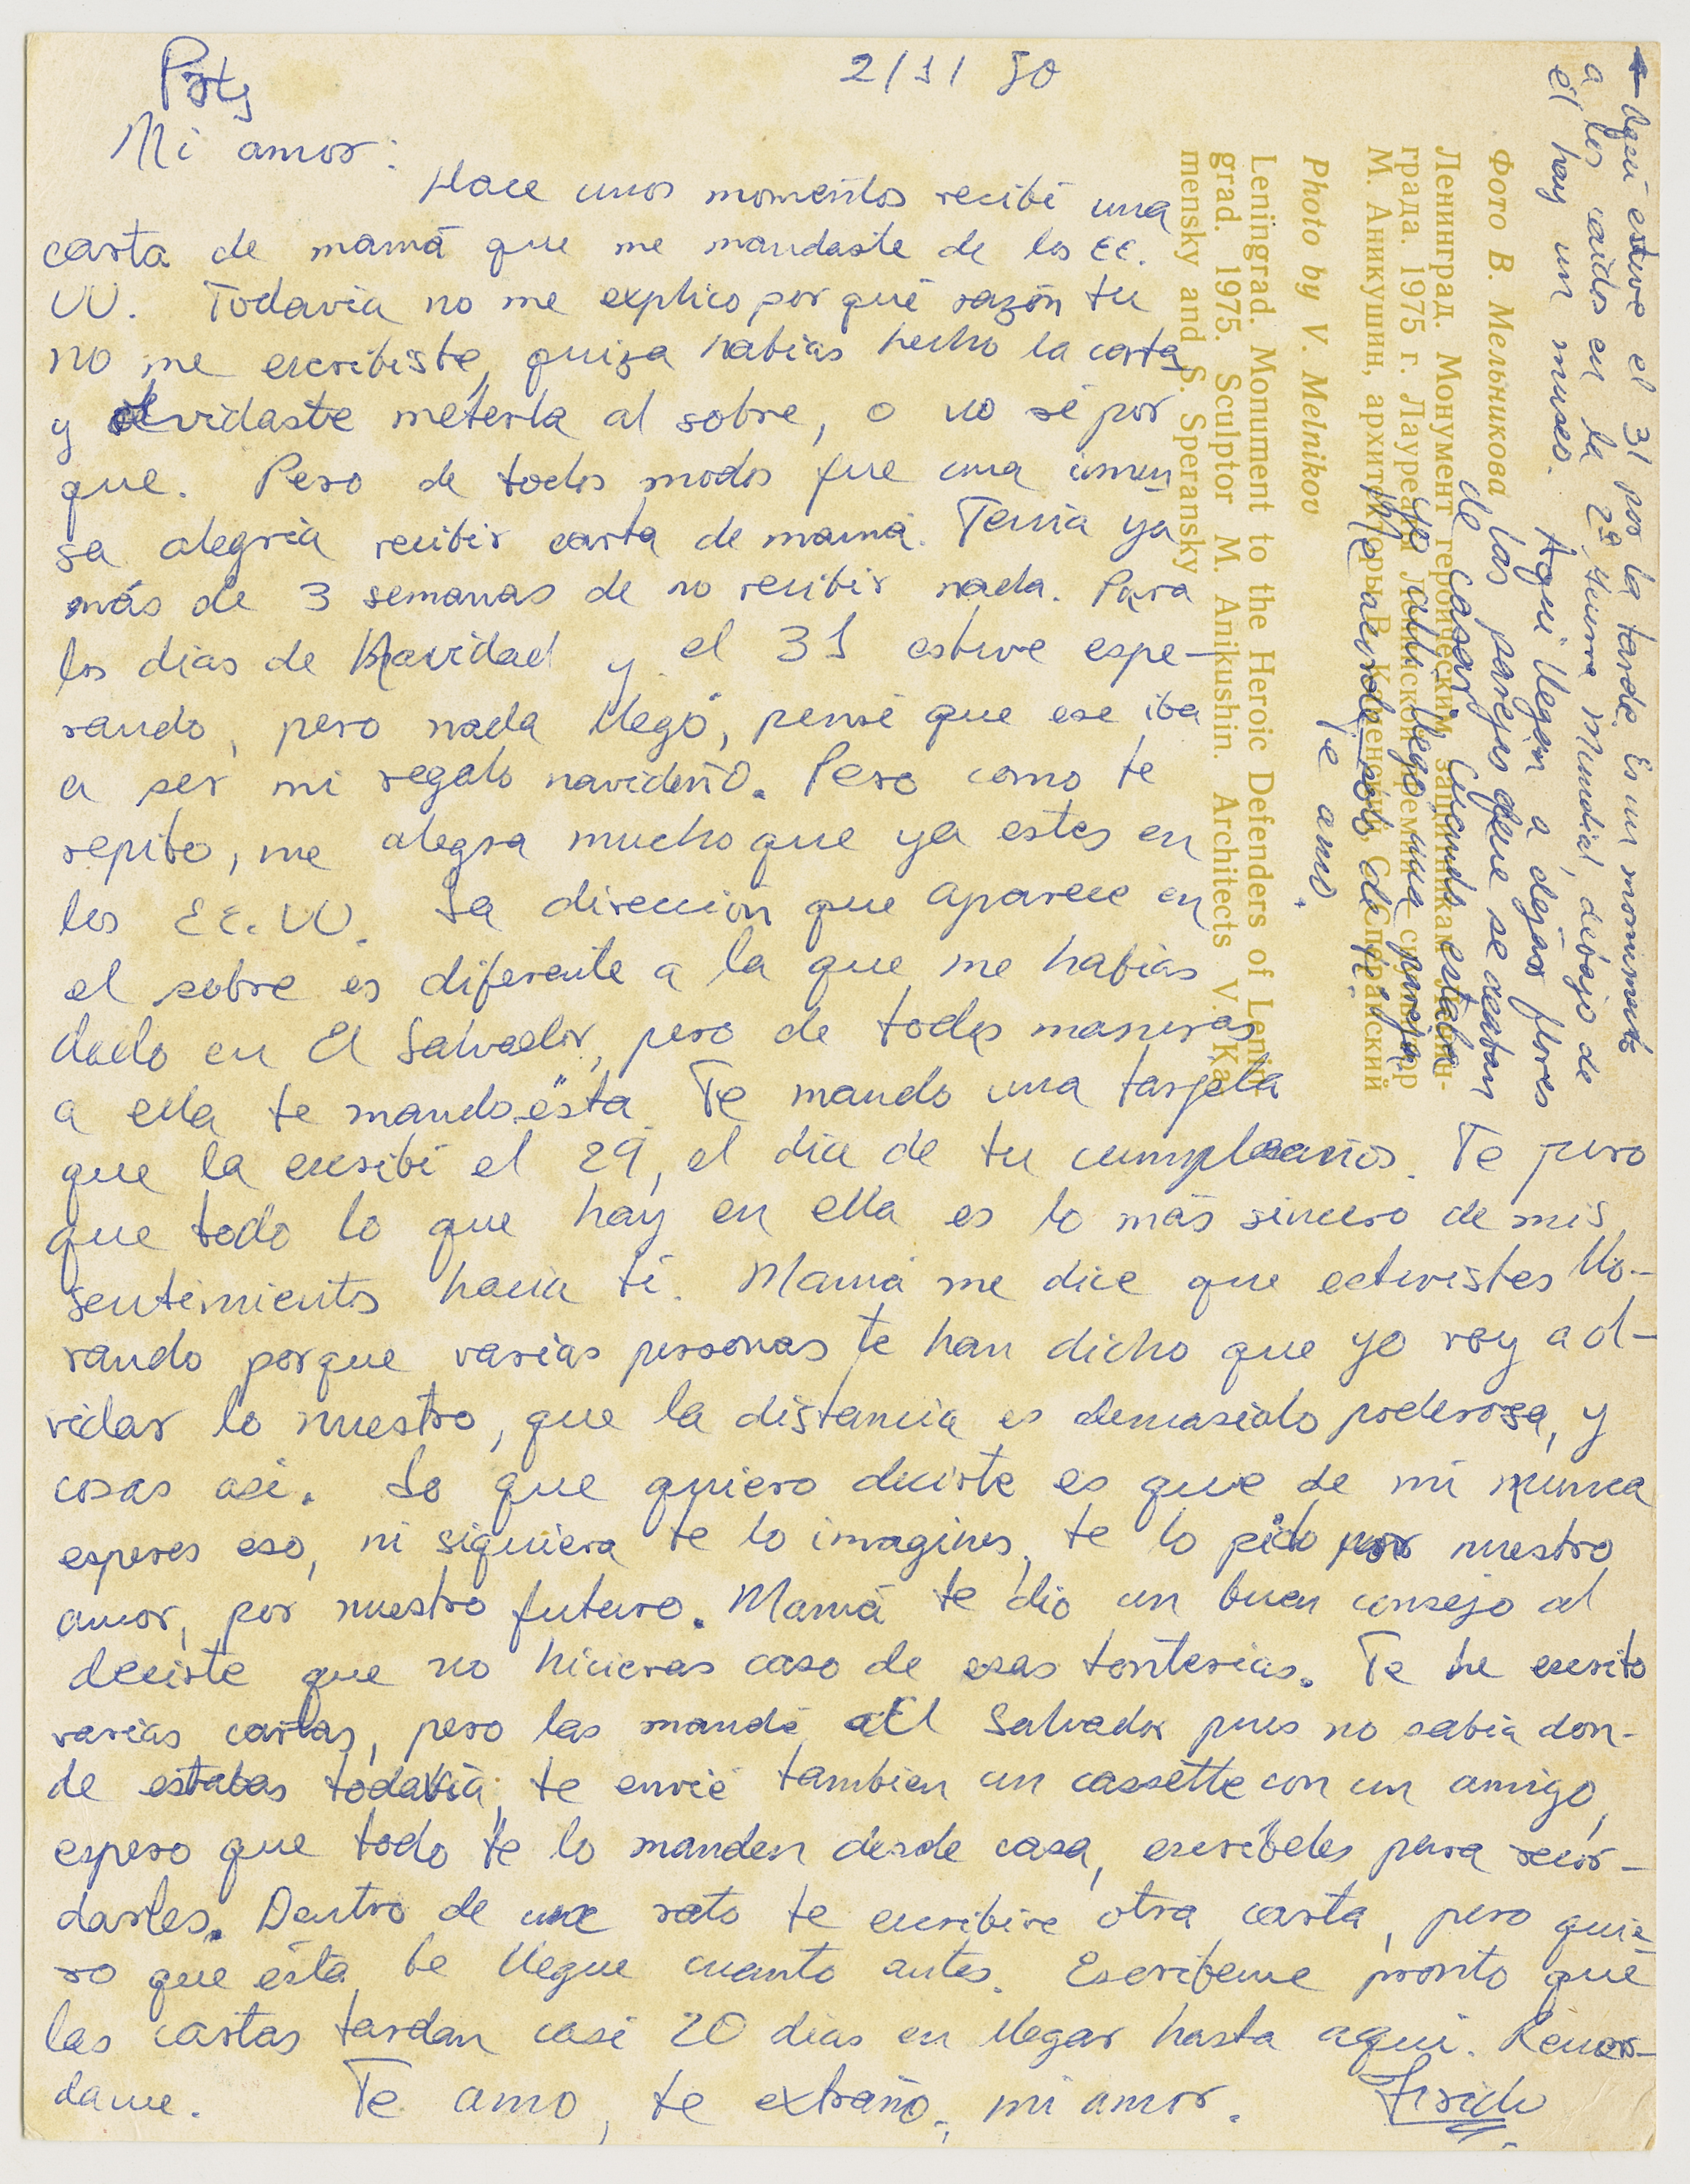 Paty
2/1/80
Mi amor:
Hace unos momentos recibí una
carta de mamá que me mandaste de los EE.
UU. Todavía no me explico por qué razón tu
no me escribiste, quiza habias hecho la carta
y olvidaste meterla al sobre, o no sé por
que. Pero de todos modos fue una inmen
sa alegría recibir carta de mamá. Tenia ya
más de 3 semanas de no recibir nada. Para
los dias de Navidad y el 31 estuve espe-
rando, pero nada llegó, pensé que ese iba
a ser mi regalo navideño. Pero como te
repito, me alegra mucho que ya estes en
los EE.UU. La dirección que aparece en
el sobre es diferente a la que me habias
dado en El Salvador, pero de todas maneras
a ella te mando ésta. Te mando una tarjeta
que la escribí el 29, el día de tu cumpleaños. Te juro
que todo lo que hay en ella es lo más sincero de mis
sentimientos hacia tí. Mamá me dice que estuvistes llo-
rando porque varias personas te han dicho que yo voy a ol-
vidar lo nuestro, que la distancia es demasiado poderosa, y
cosas asi. Lo que quiero decirte es que de mí nunca
esperes eso, ni siquiera te lo imagines, te lo pido por nuestro
amor, por nuestro futuro. Mamá te dio un buen consejo al
decirte que no hicieras caso de esas tonterias. Te he escrito
varias cartas, pero las mandé al Salvador pues no sabia don-
de estabas todavía, te envié tambien un cassette con un amigo,
espero que todo te lo manden desde casa, escríbeles para recor-
darles. Dentro de un rato te escribire otra carta, pero quie-
ro que ésta te llegue cuanto antes. Escríbeme pronto que
las cartas tardan casi 20 dias en llegar hasta aqui. Recuer-
dame. Te amo, te extraño, mi amor.
← Aquí estuve el 31 por la tarde. Es un monumento
a los caídos en la 2ª Guerra Mundial, debajo de
él hay un museo.
Aqui llegan a dejar flores
las parejas que se acaban
de casar. Cuando estaba
yo allí llegó una pareja
y me acordé solo de ti.
Te amo.
Фото В. Мельникова
Ленинград. Монумент героическим защитникам Ленин-
града. 1975 г. Лауреаты Ленинской премии скульптор
М. Аникушин, архитекторы В. Каменский, С. Сперанский
Photo by V. Melnikov
Leningrad. Monument to the Heroic Defenders of Lenin-
grad. 1975. Sculptor M. Anikushin. Architects V. Ka-
mensky and S. Speransky